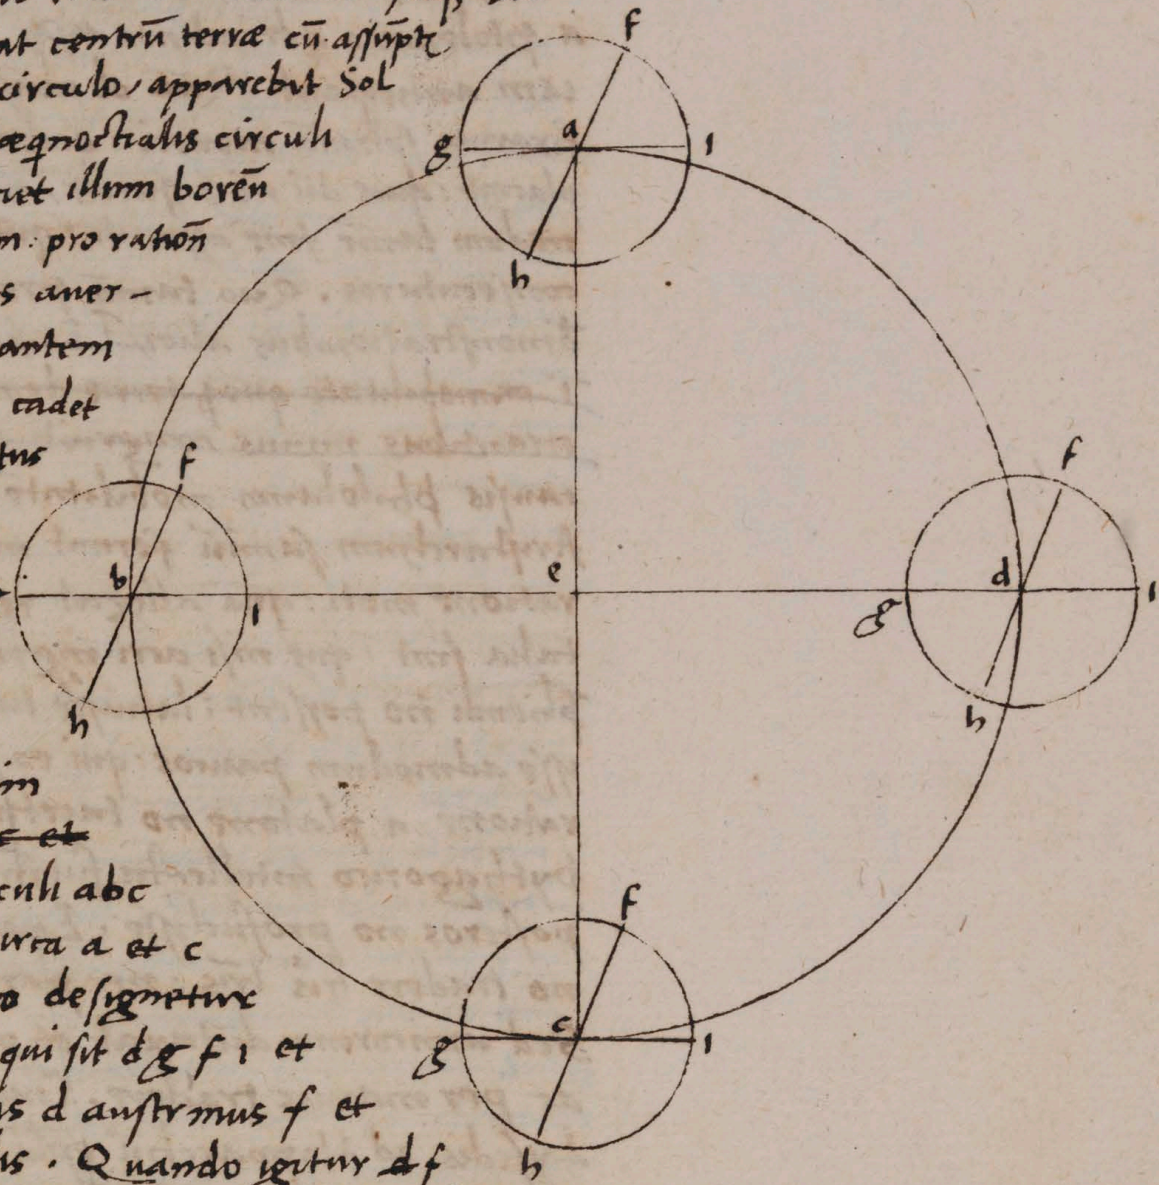 at centrū terræ cū assūpti
circulo, apparebit Sol
æq̄noctialis circuli
illum boreū
pro ration̄
s aver-
antem
cadet
tus
in
c et
culi abc
circa a et c
o designetur
qui sit d g f i et
is d austrinus f et
is . Quando igitur df
f
g a i
h
f
b i
h
e
f
g d i
h
f
g c i
h